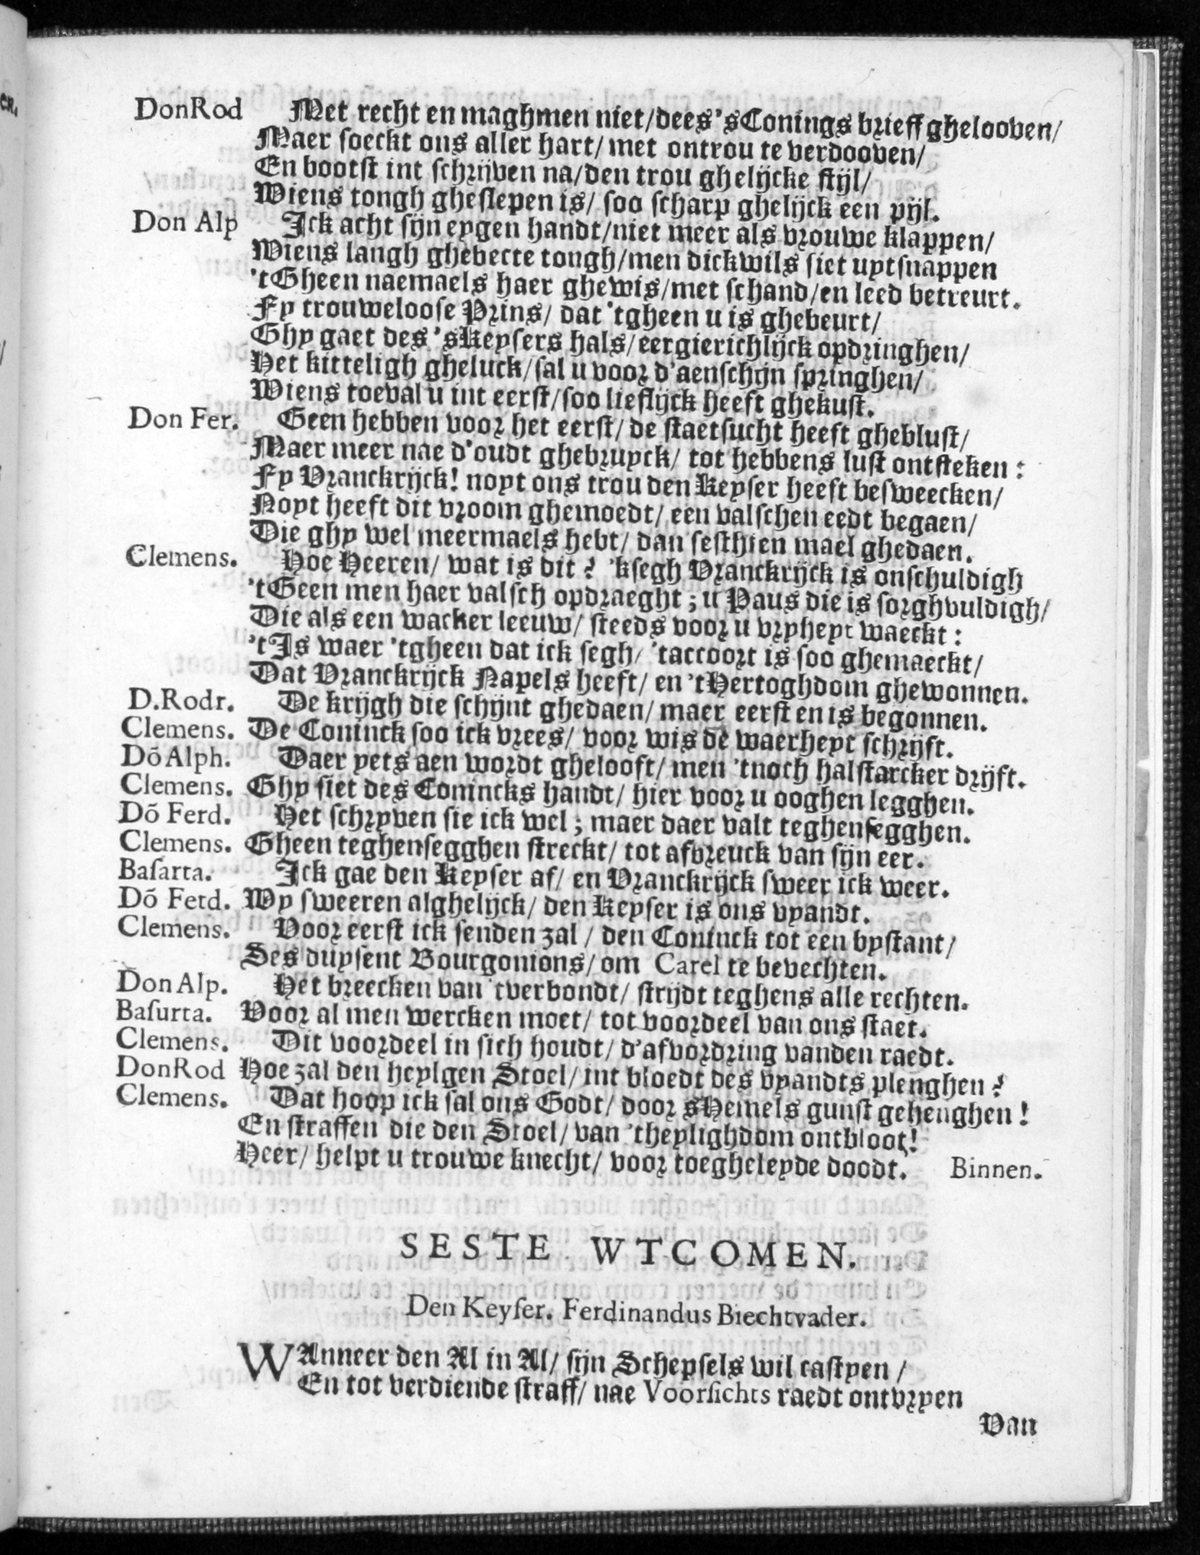 DonRod Met recht en maghmen niet/dees 'sConings brieff ghelooven/
Maer soeckt ons aller hart/ met ontrou te verdooven/
En bootst int schrijven na/den trou ghelijcke stijl/
Wiens tongh gheslepen is/ soo scharp ghelijck een pijl.
Don Alp Ick acht sijn eygen handt/niet meer als vrouwe klappen/
Wiens langh ghebecte tongh/men dickwils siet uytsnappen
'tGheen naemaels haer ghewis/met schand/en leed betreurt.
Fy trouweloose Prins/ dat 'tgheen u is ghebeurt/
Ghy gaet des 'sKeysers hals/eergierichlijck opdringhen/
Het kitteligh gheluck/sal u voor d'aenschijn springhen/
Wiens toeval u int eerst/soo lieflijck heeft ghekust.
Don Fer. Geen hebben voor het eerst/ de staetsucht heeft gheblust/
Maer meer nae d'oudt ghebruyck/ tot hebbens lust ontsteken :
Fy Vranckrijck! noyt ons trou den Keyser heeft besweecken/
Noyt heeft dit vroom ghemoedt/ een valschen eedt begaen/
Die ghy wel meermaels hebt/ dan sesthien mael ghedaen.
Clemens. Hoe Heeren/ wat is dit ? 'ksegh Vranckrijck is onschuldigh
'tGeen men haer valsch opdraeght ; u Paus die is sorghvuldigh/
Die als een wacker leeuw/ steeds voor u vryheyt waeckt :
't Is waer 'tgheen dat ick segh/ 'taccoort is soo ghemaeckt/
Dat Vranckrijck Napels heeft/ en 'tHertoghdom ghewonnen.
D.Rodr. De krijgh die schijnt ghedaen/ maer eerst en is begonnen.
Clemens. De Coninck soo ick vrees/ voor wis de waerheyt schrijft.
Dõ Alph. Daer yets aen wordt ghelooft/ men 'tnoch halstarcker drijft.
Clemens. Ghy siet des Conincks handt/ hier voor u ooghen legghen.
Dõ Ferd. Het schryven sie ick wel ; maer daer valt teghensegghen.
Clemens. Gheen teghensegghen streckt/ tot afbreuck van sijn eer.
Basarta. Ick gae den Keyser af/ en Vranckrijck sweer ick weer.
Dõ Ferd. Wy sweeren alghelijck/ den Keyser is ons vyandt.
Clemens. Voor eerst ick senden zal / den Coninck tot een bystant/
Ses duysent Bourgonions/ om Carel te bevechten.
Don Alp. Het breecken van 'tverbondt/ strijdt teghens alle rechten.
Basurta. Voor al men wercken moet/ tot voordeel van ons staet.
Clemens. Dit voordeel in sich houdt/ d'afvordring vanden raedt.
DonRod Hoe zal den heylgen Stoel/ int bloedt des vyandts plenghen ?
Clemens. Dat hoop ick sal ons Godt/ door sHemels gunst gehenghen !
En straffen die den Stoel/ van 'theylighdom ontbloot!
Heer/ helpt u trouwe knecht/ voor toegheleyde doodt. Binnen.
SESTE WTCOMEN.
Den Keyser. Ferdinandus Biechtvader.
WAnneer den Al in Al/ sijn Schepsels wil castyen /
En tot verdiende straff/ nae Voorsichts raedt ontvryen
Van